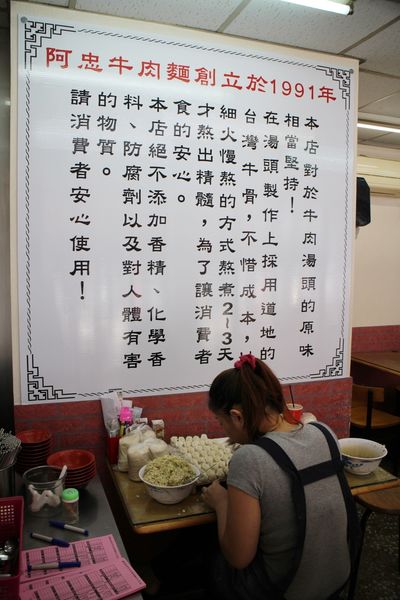 阿忠牛肉麵創立於1991年
本店對於牛肉湯頭的原味
相當堅持！
在湯頭製作上採用道地的
台灣牛骨，不惜成本，
細火慢熬的方式熬煮2~3天
才熬出精髓，為了讓消費者
食的安心。
本店絕不添加香精、化學香
料、防腐劑以及對人體有害
的物質。
請消費者安心使用！